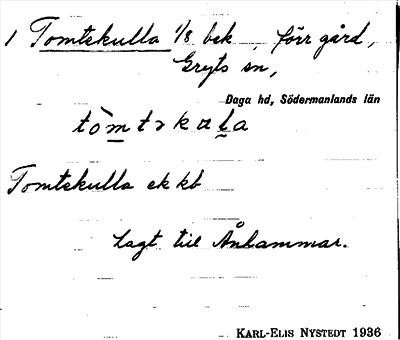 1 Tomtskulla 1/8 bek, förr gård,
Gryts sn,
Daga hd, Södermanlands län
Tomtskulla ek kb
Lagt till Ånhammar.
KARL-ELIS NYSTEDT 1936